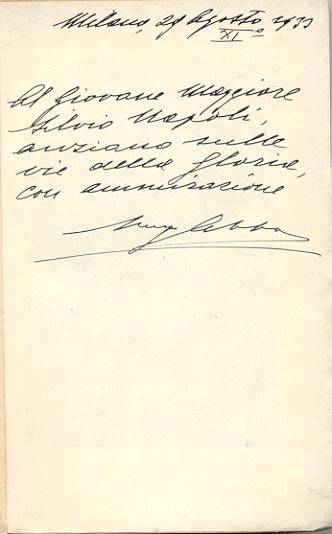 Milano, 29 Agosto 1933
XI°
Al giovane Maggiore
Silvio Napoli,
anziano sulle
vie della gloria,
con ammirazione
Abba